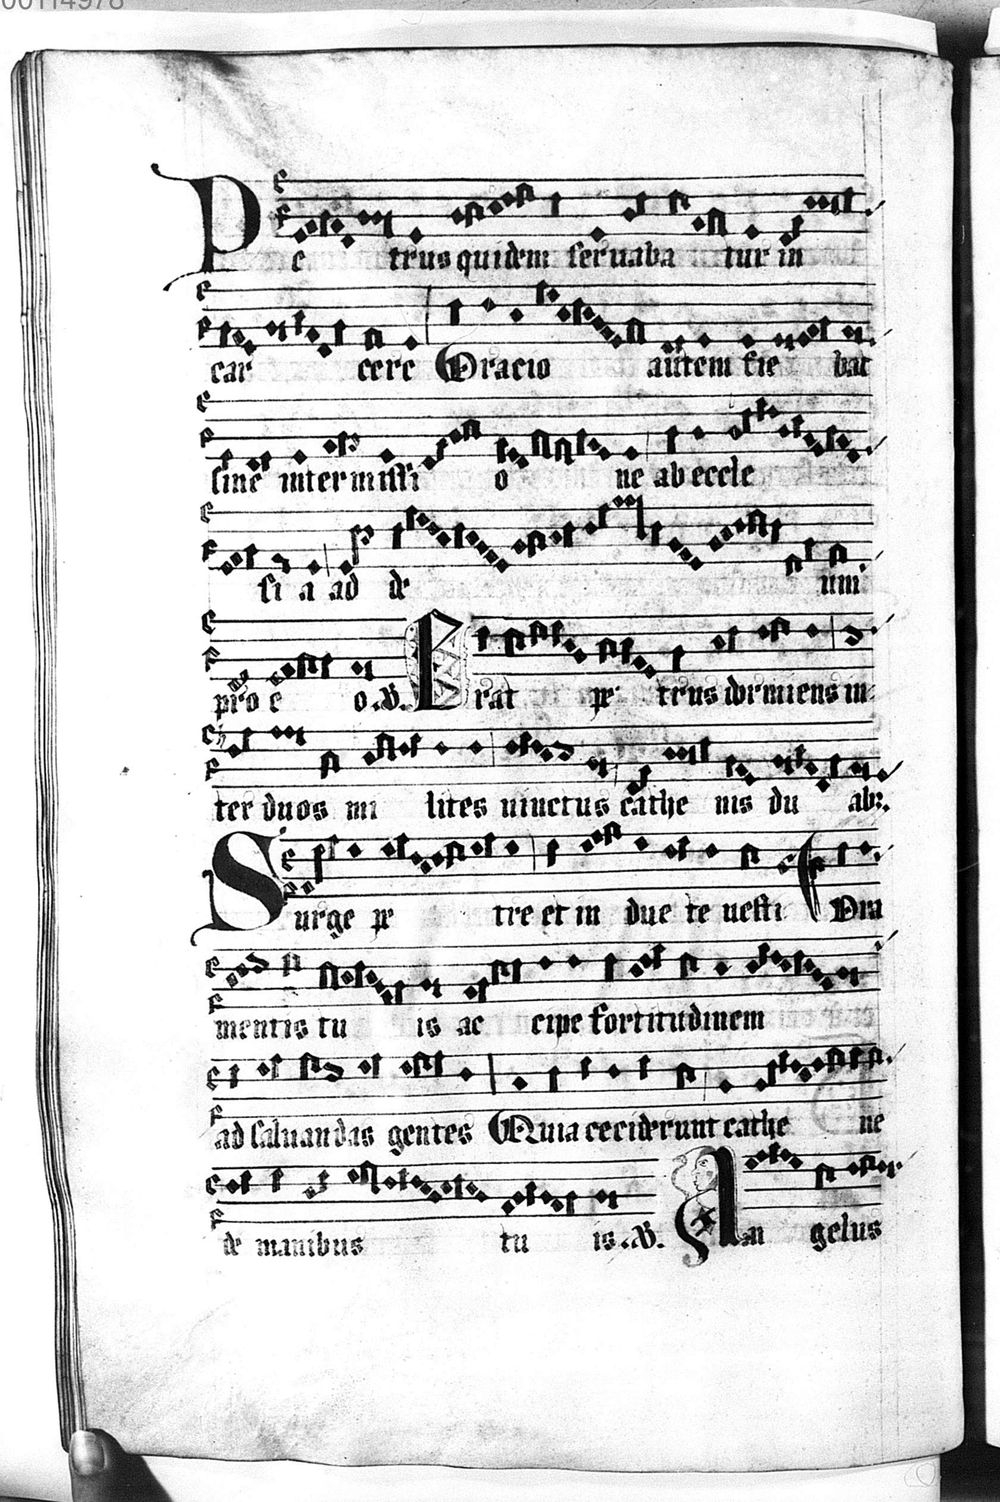 00114978
Pe trus quidem seruaba tur in
car cere Oracio autem fie bat
sine intermissi o ne ab eccle
si a ad de um
pro e o. V. Erat pe trus dormiens in
ter duos mi lites uinctus cathe nis du abꝫ.
Surge pe tre et in due te uesti Orna
mentis tu is ac cipe fortitudinem
ad saluandas gentes Quia ceciderunt cathe ne
de manibus tu is. V. An gelus